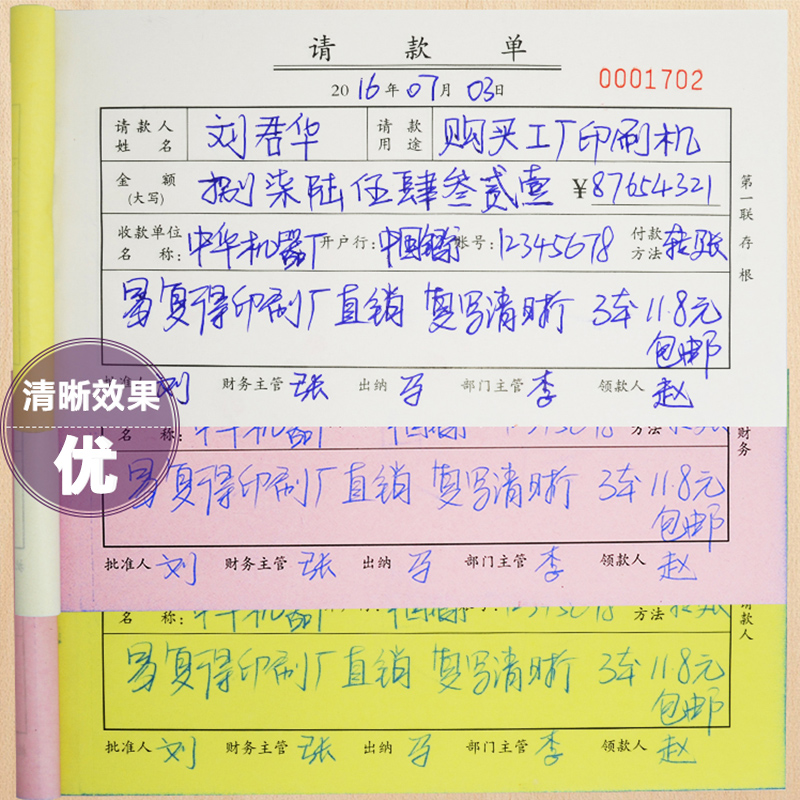 请款单
0001702
2016年07月03日
请款人姓名 刘君华 请款用途 购买工厂印刷机
金额(大写) 捌柒陆伍肆叁贰壹 ¥87654321
收款单位名称: 中华机器厂 开户行: 中国银行 账号: 12345678 付款方法 转账
易复得印刷厂直销 复写清晰 3本11.8元
包邮
批准人 刘 财务主管 张 出纳 马 部门主管 李 领款人 赵
第一联存根
清晰效果
优
名称: 中华机器厂 中国银行 12345678 方法 转账
易复得印刷厂直销 复写清晰 3本11.8元
包邮
批准人 刘 财务主管 张 出纳 马 部门主管 李 领款人 赵
财务
名称: 中华机器厂 中国银行 12345678 方法 转账
易复得印刷厂直销 复写清晰 3本11.8元
包邮
批准人 刘 财务主管 张 出纳 马 部门主管 李 领款人 赵
请款人